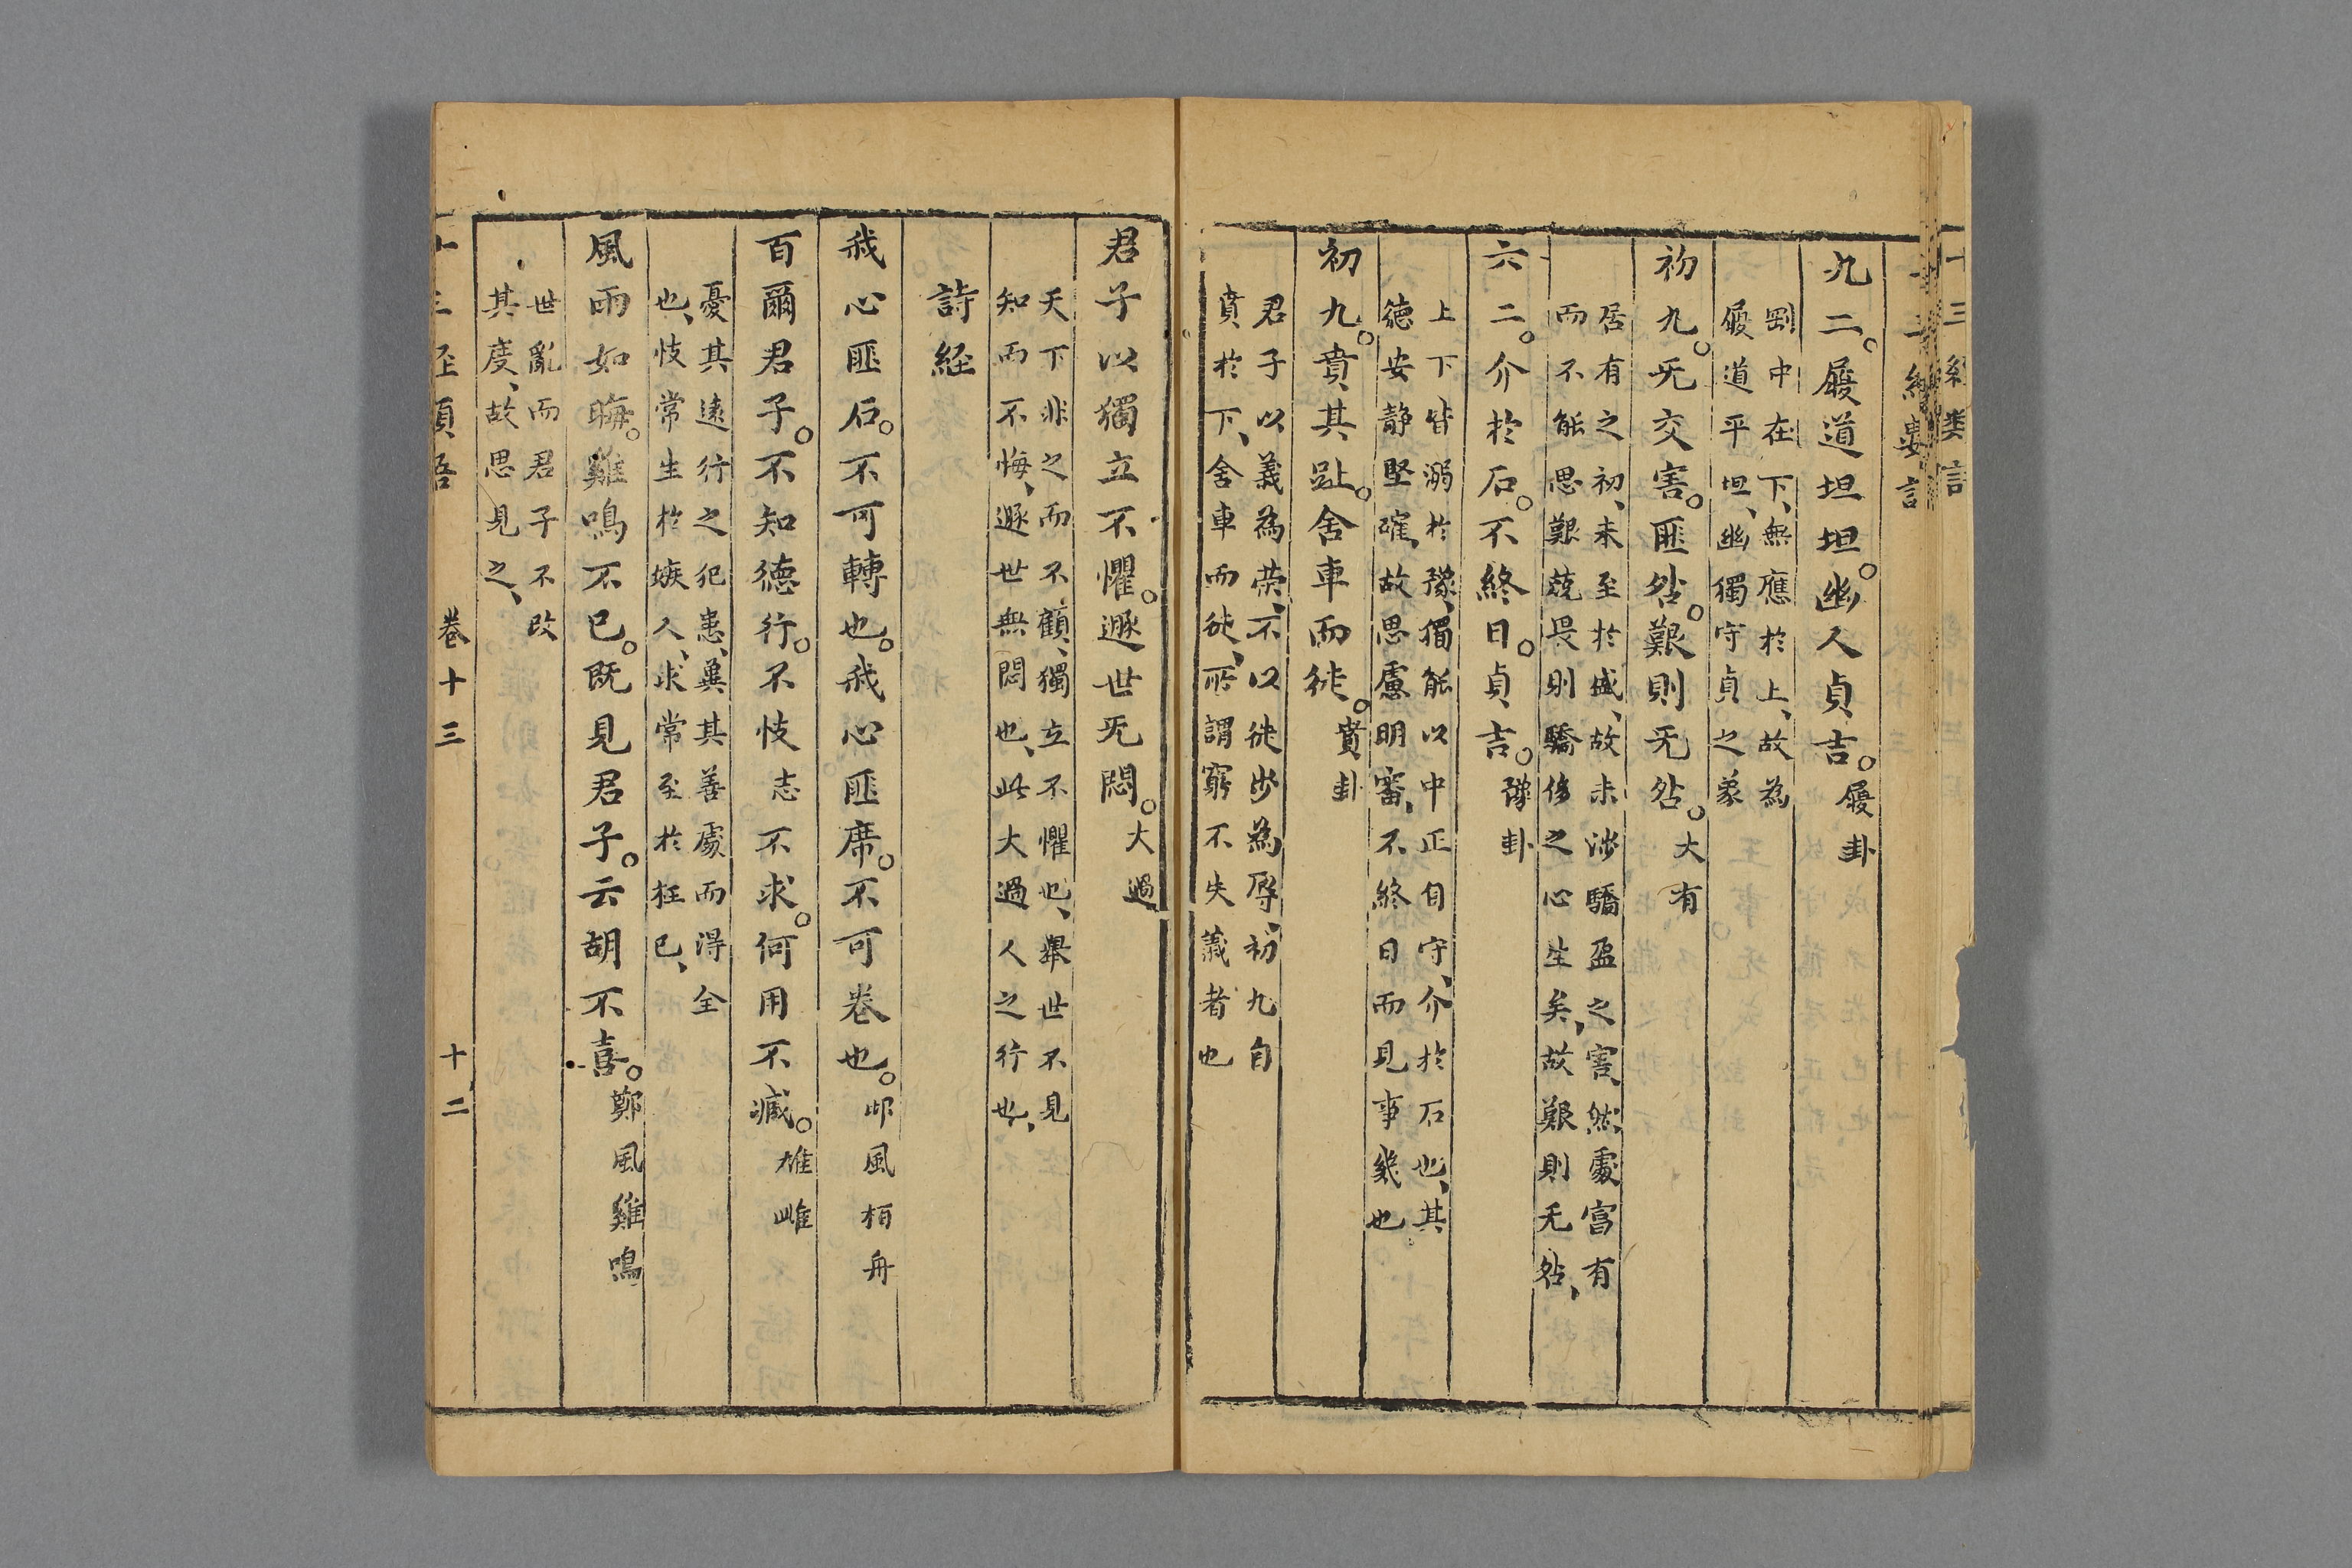 九二。履道坦坦。幽人貞吉。履卦
剛中在下、無應於上、故為
履道平坦、幽獨守貞之象
初九。旡交害。匪咎。艱則旡咎。大有
居有之初、未至於盛、故未涉驕盈之害、然處富有
而不能思艱兢畏則驕侈之心生矣、故艱則无咎、
六二。介於石。不終日。貞吉。豫卦
上下皆溺於豫、獨能以中正自守、介於石也、其
德安静堅確、故思慮明審、不終日而見事幾也
初九。賁其趾。舍車而徒。賁卦
君子以義為荣、不以徒步為辱、初九自
賁於下、舍車而徒、所謂窮不失義者也
君子以獨立不懼。遯世旡悶。大過
天下非之而不顧、獨立不懼也、舉世不見
知而不悔、遯世無悶也、此大過人之行也、
詩経
我心匪石。不可轉也。我心匪席。不可卷也。邶風栢舟
百爾君子。不知德行。不忮志不求。何用不臧。雄雌
憂其遠行之犯患、冀其善處而得全
也、忮常生於嫉人、求常至於枉己、
風雨如晦。雞鳴不已。既見君子。云胡不喜。鄭風雞鳴
世亂而君子不改
其度、故思見之、
卷十三 十二